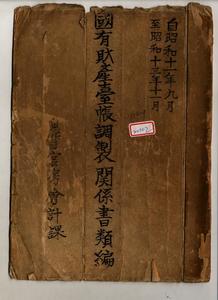 自昭和十一年九月
至昭和十三年十一月
國有財產臺帳調製関係書類編
會計課